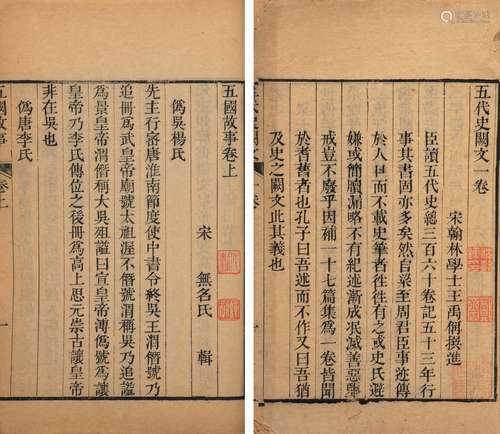 五代史闕文一卷
宋翰林學士王禹偁撰進
臣讀五代史總三百六十卷記五十三年行
事其書固亦多矣然自梁至周君臣事迹傳
於人口而不載史筆者往往有之或史氏避
嫌或簡牘漏略不有紀述漸成泯滅善惡鑒
戒豈不廢乎因補一十七篇集為一卷皆聞
於耆舊者也孔子曰吾述而不作又曰吾猶
及史之闕文此其義也
五國故事卷上
宋 無名氏 輯
僞吳楊氏
先主行密唐淮南節度使中書令終吳王渭僭號乃
追冊為武皇帝廟號太祖渥不僭號渭稱吳乃追謚
為景皇帝渭僭稱大吳祖謚曰宣皇帝溥僞號為讓
皇帝乃李氏傳位之後冊為高上思元崇古讓皇帝
非在吳也
僞唐李氏
五國故事
卷上
一